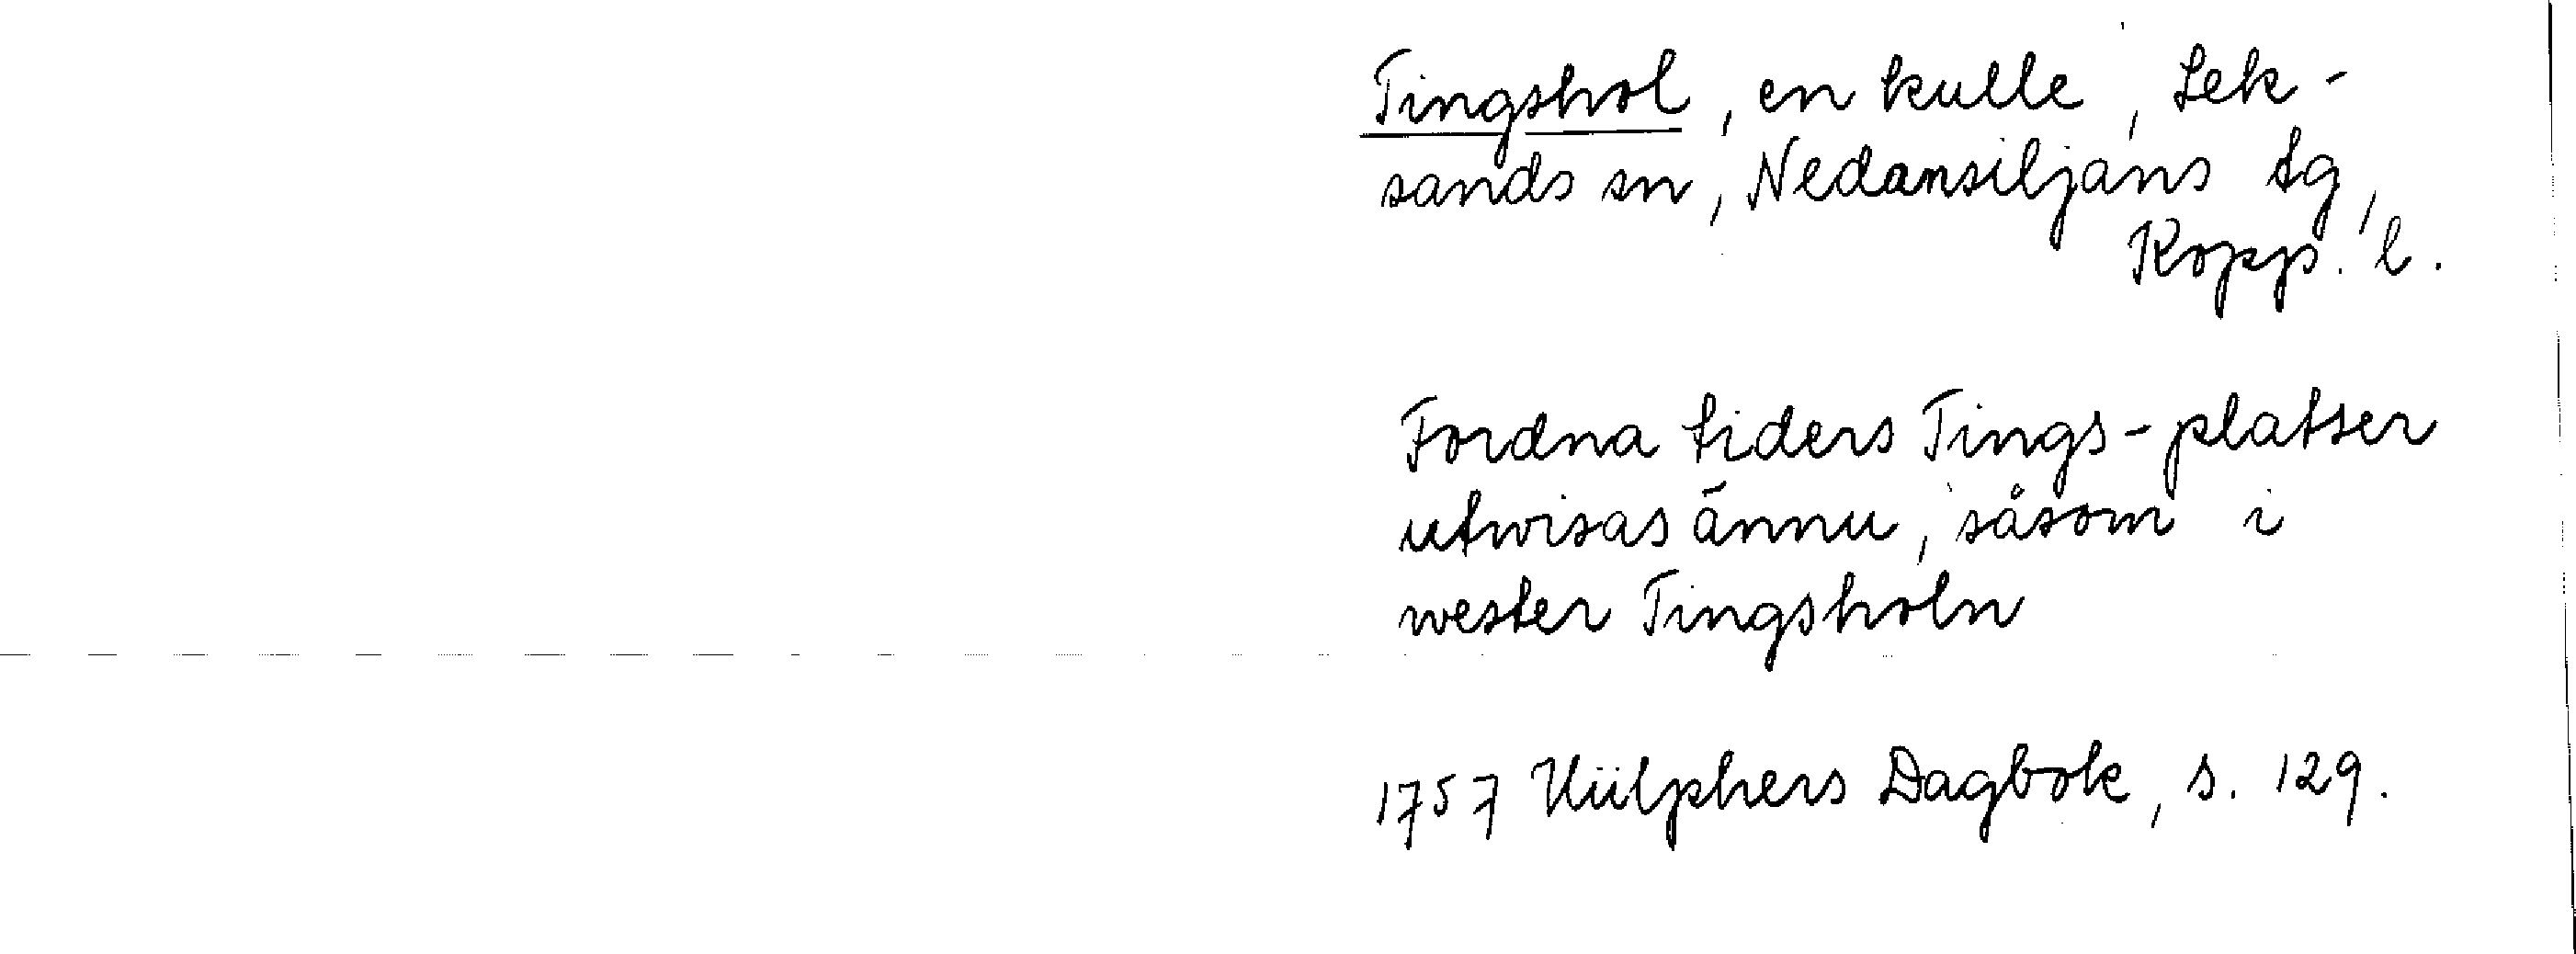 Tingshol, en kulle, Lek-
sands sn, Nedansiljans tg,
Kopp. l.
Fordna tiders Tings-platser
utwisas ännu, såsom i
wester Tingsholn
1757 Hülphers Dagbok, s. 129.